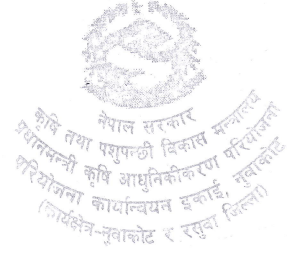 नेपाल सरकार
कृषि तथा पशुपन्छी विकास मन्त्रालय
प्रधानमन्त्री कृषि आधुनिकीकरण परियोजना
परियोजना कार्यान्वयन इकाई, नुवाकोट
(कार्यक्षेत्र-नुवाकोट र रसुवा जिल्ला)